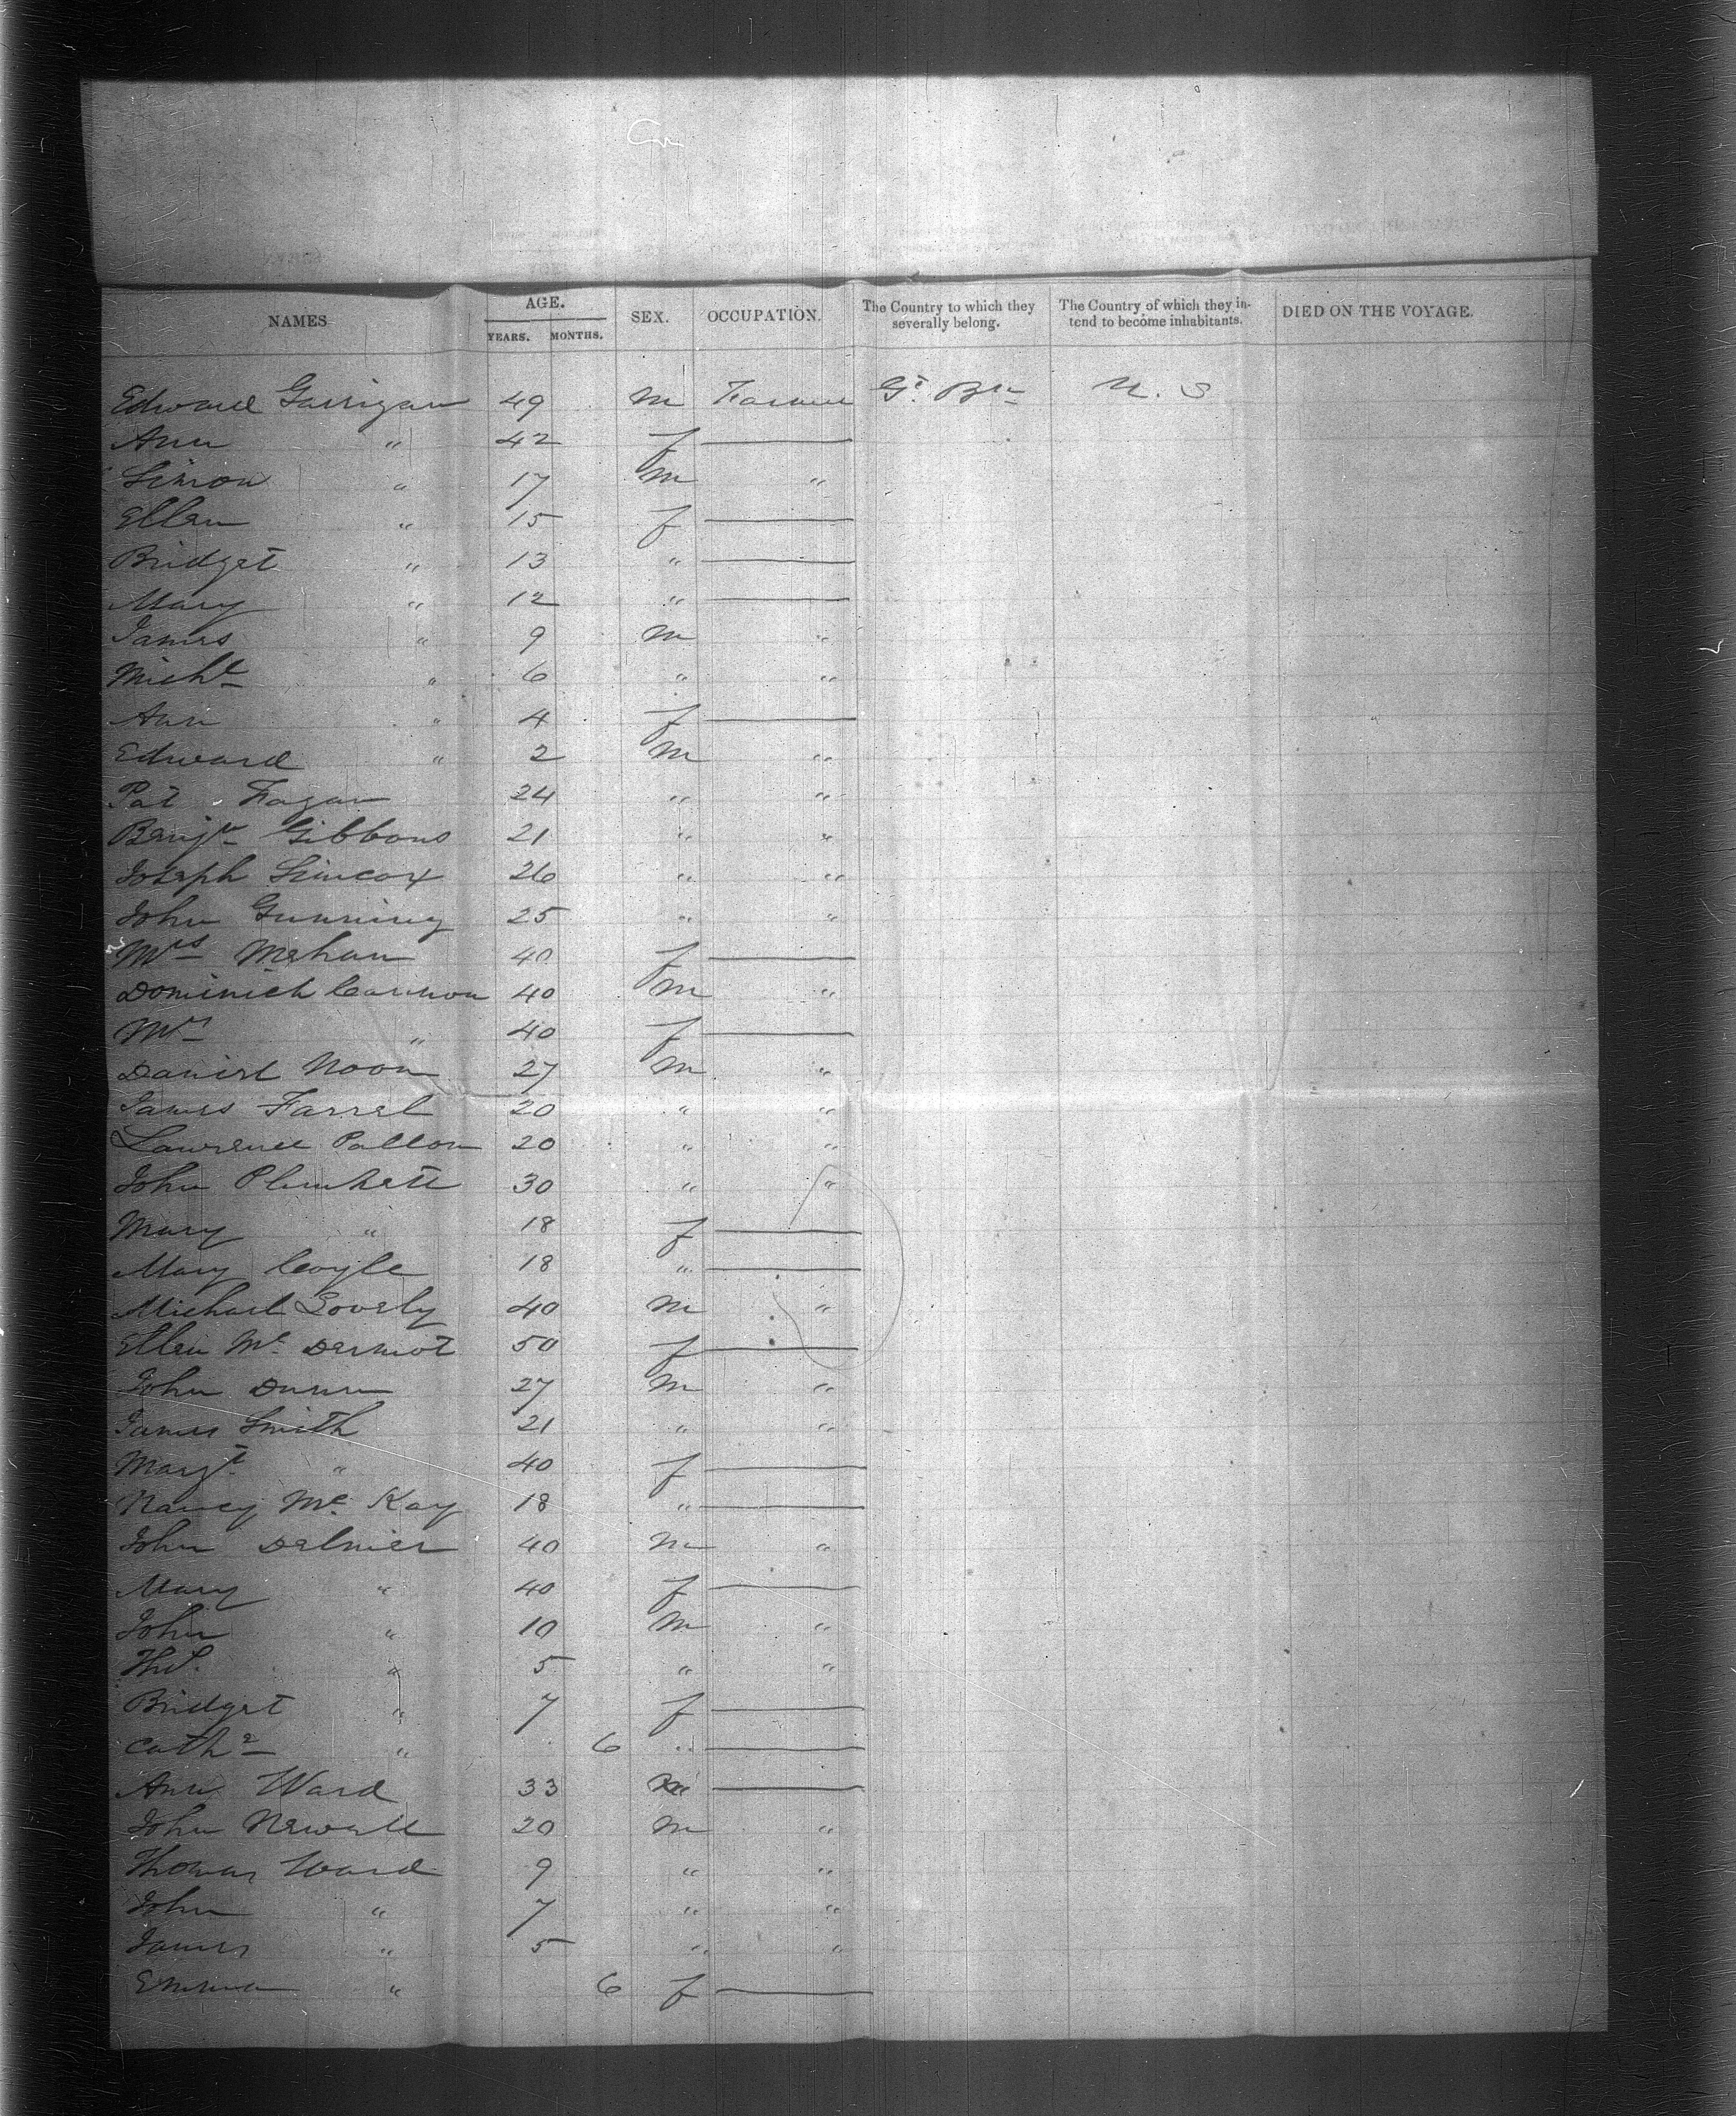 NAMES AGE. YEARS. MONTHS. SEX. OCCUPATION. The Country to which they severally belong. The Country of which they intend to become inhabitants. DIED ON THE VOYAGE.
Edward Garrigan 49 m Farmer Gt. Brn U. S
Ann " 42 f
Simon " 17 m "
Ellen " 15 f
Bridget " 13 "
Mary " 12 "
James " 9 m "
Michl " 6 " "
Ann " 4 f
Edward " 2 m "
Pat Fagan 24 " "
Benjn Gibbons 21 " "
Joseph Simcox 26 " "
John Gunning 25 " "
Mrs Mehan 40 f
Dominick Cannon 40 m "
Mrs " 40 f
Daniel Noon 27 m "
James Farrel 20 " "
Lawrence Patton 20 " "
John Plunkett 30 " "
Mary " 18 f
Mary Coyle 18 "
Michael Lovely 40 m "
Ellen Mc Dermot 50 f
John Dunn 27 m "
James Smith 21 " "
Margt " 40 f
Nancy Mc Kay 18 "
John Delmer 40 m "
Mary " 40 f
John " 10 m "
Ths. " 5 " "
Bridget " 7 f
Cathe " 6 "
Ann Ward 33
John Newall 20 m "
Thomas Ward 9 " "
John " 7 " "
James " 5 " "
Emma " 6 f